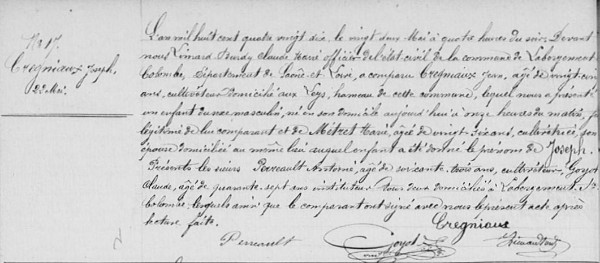 No 17.
Cregniaux Joseph.
22 Mai.
L'an mil huit cent quatre vingt dix, le vingt deux Mai à quatre heures du soir. Devant
nous Limard Burdy Claude Marie officier de l'état civil de la commande de Labergement
Colombe, département de Saône et Loire, a comparu Cregniaux Jean, âgé de vingt cinq
ans, cultivateur domicilié aux Leys, hameau de cette commune, lequel nous a présenté
un enfant du sexe masculin, né en son domicile aujourd'hui à onze heures du matin, fils
légitime de lui comparant et de Métret Marie, âgée de vingt ans, cultivatrice, son
épouse domiciliée au même lieu auquel enfant a été donné le prénom de Joseph.
Présents les sieurs Perreault Antoine, âgé de soixante trois ans, cultivateur, Goyot
Claude, âgé de quarante sept ans instituteur tous deux domiciliés à Labergement Ste
Colombe, lesquels ainsi que le comparant ont signé avec nous le présent acte après
lecture faite.
Cregniaux
Perreault Goyot